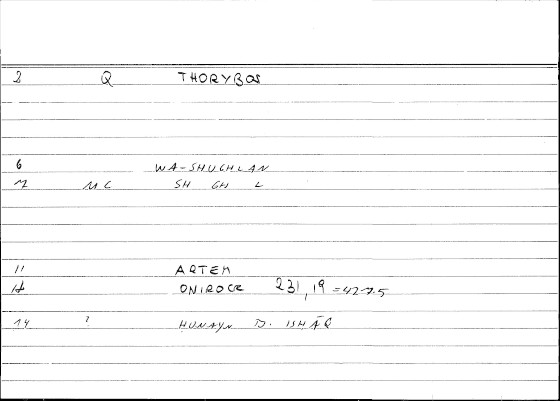 2 Q THORYBOS
6
WA-SHUGHLAN
7 MC SH GH L
11 ARTEM
12 ONIROCR 231,19 = 427.5
14 ? HUNAYN B. ISHĀQ